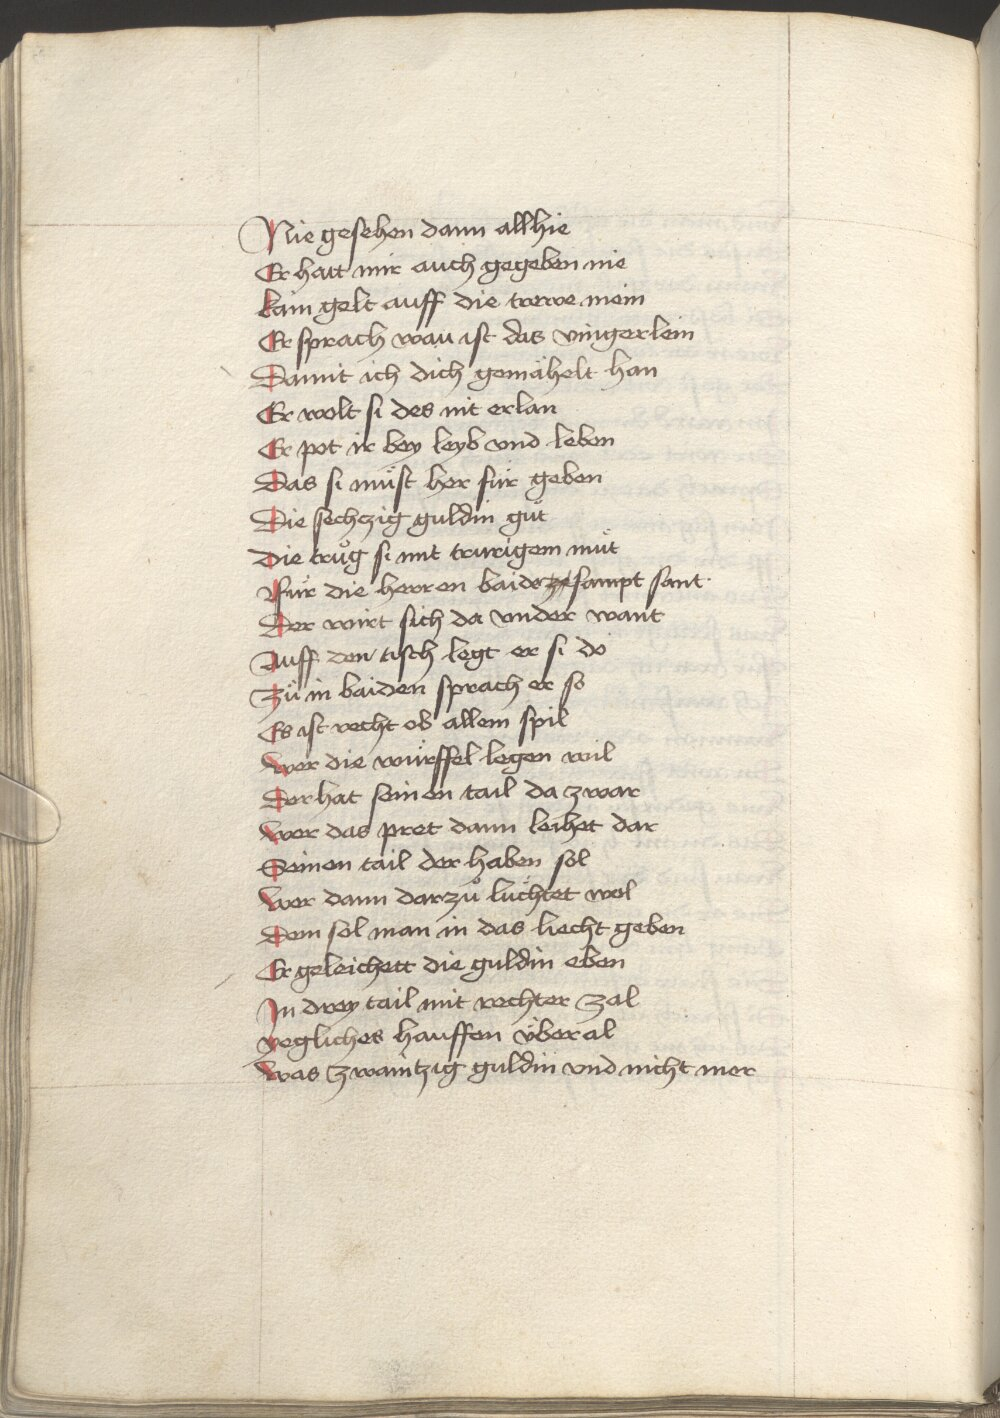 Nie gesehen dann allhie
Er hatt mir auch gegeben nie
kain gelt auff die trewe mein
Er sprach wau ist das vingerlein
Damit ich dich gemähelt han
Er wolt si des nit erlan
Er pot ir bey leyb vnd leben
Das si müst her für geben
Die sechczig guldin güt
Die trůg si mit trurigem müt
Für die herren baide sampt sant
Der wirt sich da vnder want
Auff den tisch legt er si do
Zü in baiden sprach er so
Es ist recht ob allem spil
wer die würffel legen wil
Der hat seinen tail da zwar
wer das pret dann leihet dar
Seinen tail der haben sol
wer dann darzů lüchtet wol
Dem sol man in das liecht geben
Er geleichett die guldin eben
In drey tail mit rechter zal
yegliches hauffen überal
was zwaintzig guldin vnd nicht mer